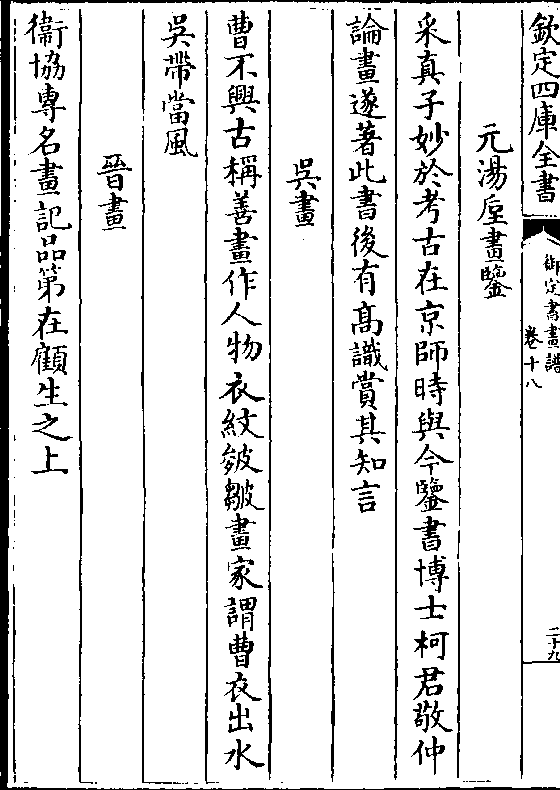 欽定四庫全書
御定書畫譜
卷十八
二十九
元湯垕畫鑒
采真子妙於考古在京師時與今鑒書博士柯君敬仲
論畫遂著此書後有高識賞其知言
吳畫
曹不興古稱善畫作人物衣紋皴皺畫家謂曹衣出水
吳帶當風
晉畫
衞協專名畫記品第在顧生之上